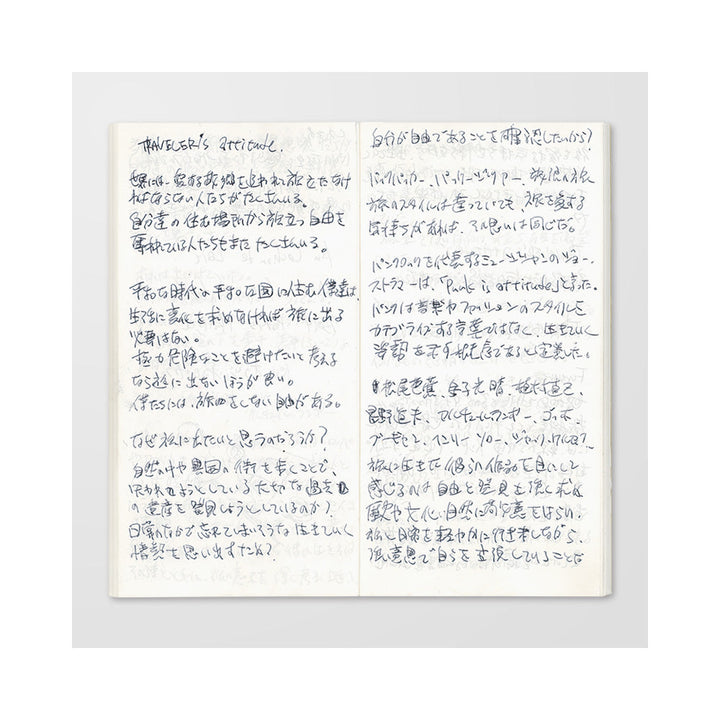 TRAVELER's attitude.
世界には、愛する故郷を追われて旅立たなけ
ればならない人たちがたくさんいる。
自分達の住む場所から旅立つ自由を
奪われている人たちもまた たくさんいる。
平和な時代の平和な国に住む僕達は、
生活に変化を求めなければ旅に出る
必要はない。
極力危険なことを避けたいと考える
なら旅に出ないほうが良い。
僕たちには、旅をしない自由がある。
なぜ旅に出たいと思うのだろうか?
自然の中や異国の街を歩くことで、
ようとしている大切な過去
の遺産を発見しようとしているのか?
日常のなかで忘れてしまいそうな 生きていく
情熱を思い出すため?
自分が自由であることを確認したいから?
バックパッカー、パッケージツアー、放浪の旅
旅のスタイルは違っていても、旅を愛する
気持ちがあれば、その思いは同じだ。
パンクロックを代表するミュージシャンのジョー・
ストラマーは、「Punk is attitude」と言った。
パンクは音楽やファッションのスタイルを
カテゴライズする言葉ではなく、生きていく
姿勢を示す概念であると定義した。
松尾芭蕉、金子光晴、植村直己、
星野道夫、アルチュール・ランボー、ゴッホ、
ゴーギャン、ヘンリー・ソロー、ジャック・ケルアック…
旅に生きた彼らの作品を目にして
感じるのは自由と発見を強く求め
歴史や文化、自然に敬意をはらい、
旅と日常を軽やかに行き来しながら、
強い意思で自らを表現していることだ